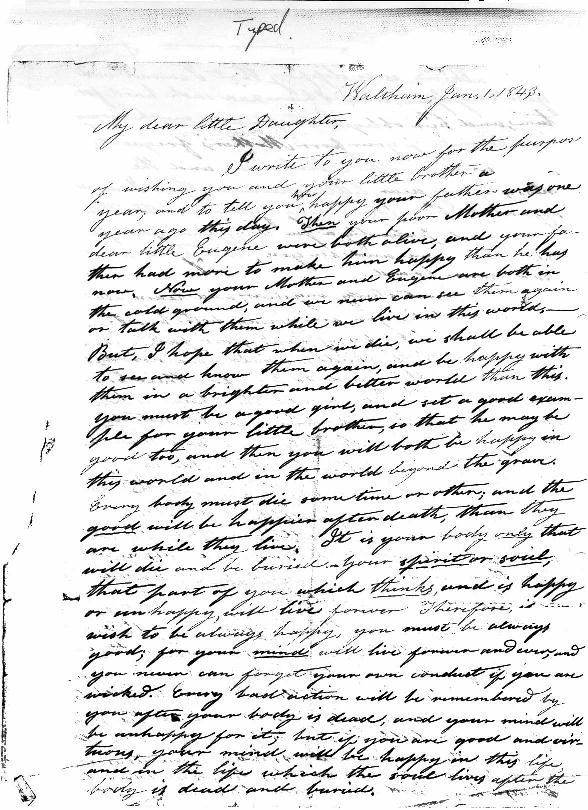 Typed.
Waltham, Jan. 1. 1843.
My dear little Daughter,
I write to you now for the purpos
of wishing you and your little brother a
year, and to tell you how happy your father was one
year ago this day. Then your poor Mother and
dear little Eugene were both alive, and your fa-
ther had more to make him happy than he has
now. Now your Mother and Eugene are both in
the cold ground, and we never can see them again
or talk with them while we live in this world,—
But, I hope that when we die, we shall be able
to see and know them again, and be happy with
them in a brighter and better world than this.
You must be a good girl, and set a good exam-
ple for your little brother, so that he may be
good too, and then you will both be happy in
this world and in the world beyond the grave.
Every body must die some time or other; and the
good will be happier after death, than they
are while they live. It is your body only that
will die and be buried – your spirit or soul,
that part of you which thinks, and is happy
or unhappy, will live forever Therefore,
wish to be always happy, you must be always
good; for your mind will live forever and ever, and
you never can forget your own conduct if you are
wicked. Every bad action will be remembered by
you after your body is dead, and your mind will
be unhappy for it; but if you are good and vir-
tuous, your mind will be happy in this life
and in the life which the soul lives after the
body is dead and buried.